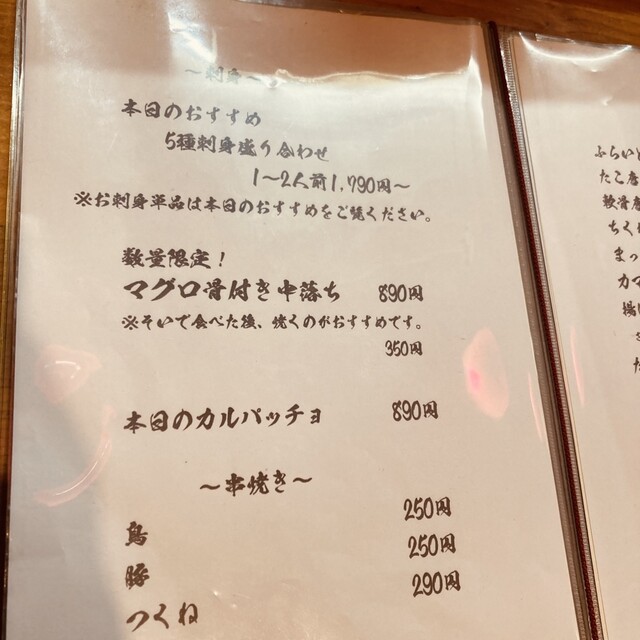 ～刺身～
本日のおすすめ
5種刺身盛り合わせ
1～2人前1,790円～
※お刺身単品は本日のおすすめをご覧ください。
数量限定！
マグロ骨付き中落ち 890円
※そいで食べた後、焼くのがおすすめです。
350円
本日のカルパッチョ 890円
～串焼き～
鳥 250円
豚 250円
つくね 290円
ふらい
たこ唐
軟骨唐
ちく
まっ
カマ
揚げ